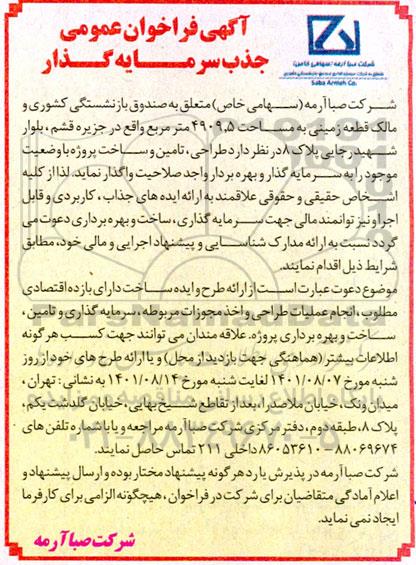 آگهی فراخوان عمومی
جذب سرمایه گذار
شرکت صبا آرمه (سهامی خاص)
Saba Armeh Co.
شرکت صبا آرمه (سهامی خاص) متعلق به صندوق بازنشستگی کشوری و
مالک قطعه زمینی به مساحت ۴۹۰۹,۵ متر مربع واقع در جزیره قشم ، بلوار
شهید رجایی پلاک ۸ در نظر دارد طراحی ، تامین و ساخت پروژه با وضعیت
موجود را به سرمایه گذار و بهره بردار واجد صلاحیت واگذار نماید. لذا از کلیه
اشخاص حقیقی و حقوقی علاقمند به ارائه ایده های جذاب ، کاربردی و قابل
اجرا و نیز توانمند مالی جهت سرمایه گذاری ، ساخت و بهره برداری دعوت می
گردد نسبت به ارائه مدارک شناسایی و پیشنهاد اجرایی و مالی خود، مطابق
شرایط ذیل اقدام نمایند.
موضوع دعوت عبارت است از ارائه طرح و ایده ساخت دارای بازده اقتصادی
مطلوب ، انجام عملیات طراحی و اخذ مجوزات مربوطه ، سرمایه گذاری و تامین ،
ساخت و بهره برداری پروژه. علاقه مندان می توانند جهت کسب هر گونه
اطلاعات بیشتر (هماهنگی جهت بازدید از محل) و یا ارائه طرح های خود از روز
شنبه مورخ ۱۴۰۱/۰۸/۰۷ لغایت شنبه مورخ ۱۴۰۱/۰۸/۱۴ به نشانی : تهران ،
میدان ونک ، خیابان ملاصدرا، بعد از تقاطع شیخ بهایی، خیابان گلدشت یکم ،
پلاک ۸، طبقه دوم ، دفتر مرکزی شرکت صبا آرمه مراجعه و یا با شماره تلفن های
۸۸۰۶۹۶۷۴ - ۸۶۰۵۳۶۱۰ داخلی ۲۱۱ تماس حاصل نمایند.
شرکت صبا آرمه در پذیرش یا رد هر گونه پیشنهاد مختار بوده و ارسال پیشنهاد و
اعلام آمادگی متقاضیان برای شرکت در فراخوان ، هیچگونه الزامی برای کارفرما
ایجاد نمی نماید.
شرکت صبا آرمه